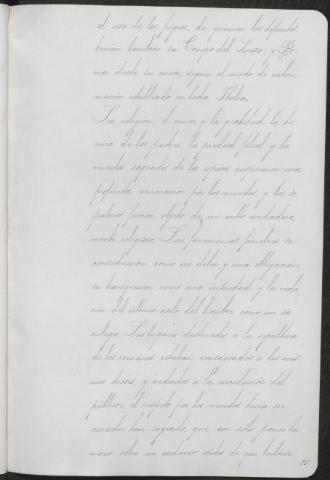 el uso de los frigios, de quemar los difuntos,
tenían también su Campo del Fuego; y Ro-
ma, desde su cuna, siguió el modo de inhu-
mación establecido en toda Italia.
La religión, el amor y la gratitud, la ter-
nura de los padres, la piedad filial y los
vínculos sagrados de los esposos inspiraron una
profunda veneración por los muertos, y los se-
pulcros fueron objeto de un culto verdadera-
mente religioso. Las ceremonias fúnebres se
consideraron como un deber y una obligación,
su transgresión como una impiedad, y la viola-
ción del último asilo del hombre como un sa-
crilegio. Los lugares destinados á la sepultura
de los romanos estaban consagrados á los mis-
mos dioses, y vedados á la circulación del
público; el respeto por los muertos tenía un
caracter tan sagrado, que, con solo poner la
mano sobre un cadáver antes de que hubiese
25.